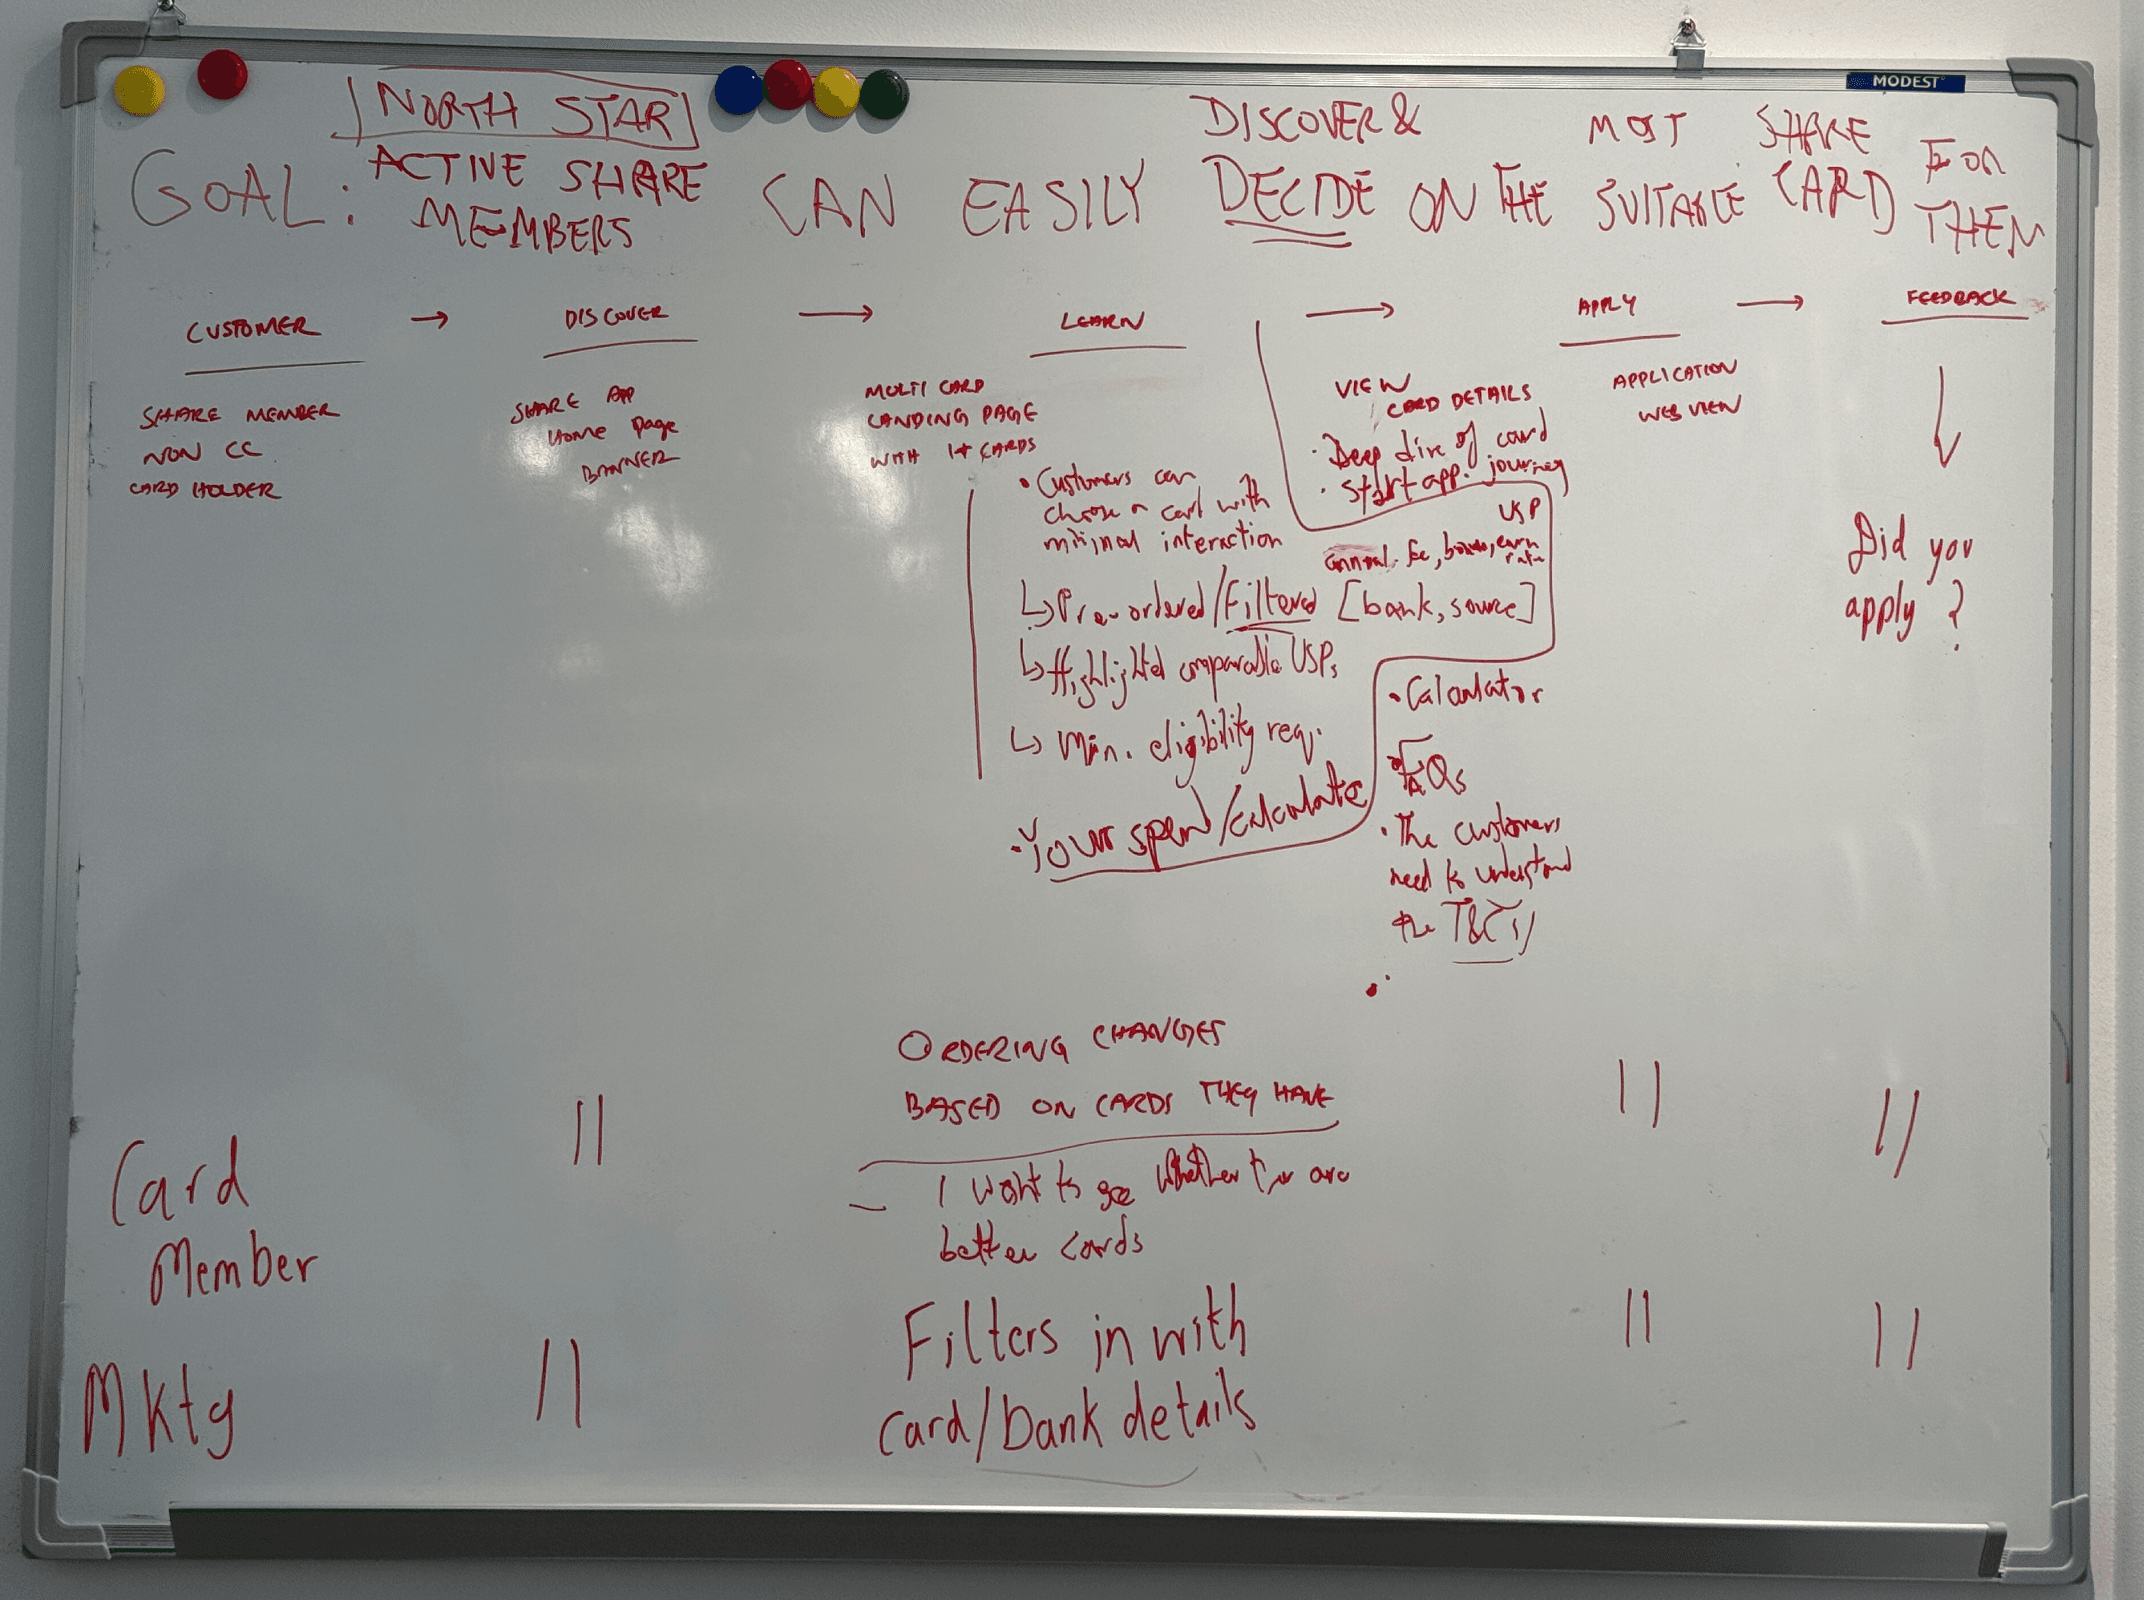 MODEST
NORTH STAR
GOAL: ACTIVE SHARE MEMBERS CAN EASILY DISCOVER & DECIDE ON THE MOST SUITABLE SHARE CARD FOR THEM
CUSTOMER → DISCOVER → LEARN → APPLY → FEEDBACK
SHARE MEMBER
NON CC
CARD HOLDER
SHARE APP
Home Page
BANNER
MULTI CARD
LANDING PAGE
WITH 1+ CARDS
• Customers can
choose a card with
minimal interaction
↳ Pre-ordered/Filtered [bank, source]
↳ Highlighted comparable USPs
↳ Min. eligibility req.
• Your spend/calculate
VIEW
CARD DETAILS
• Deep dive of card
• Start app. journey
USP
annual fee, bonus, earn
rate
• Calculator
• FAQs
• The customers
need to understand
the T&C's
APPLICATION
WEB VIEW
Did you
apply?
Card
Member
||
ORDERING CHANGES
BASED ON CARDS THEY HAVE
— I want to see whether there are
better cards
||
||
Mktg
||
Filters in with
card/bank details
||
||